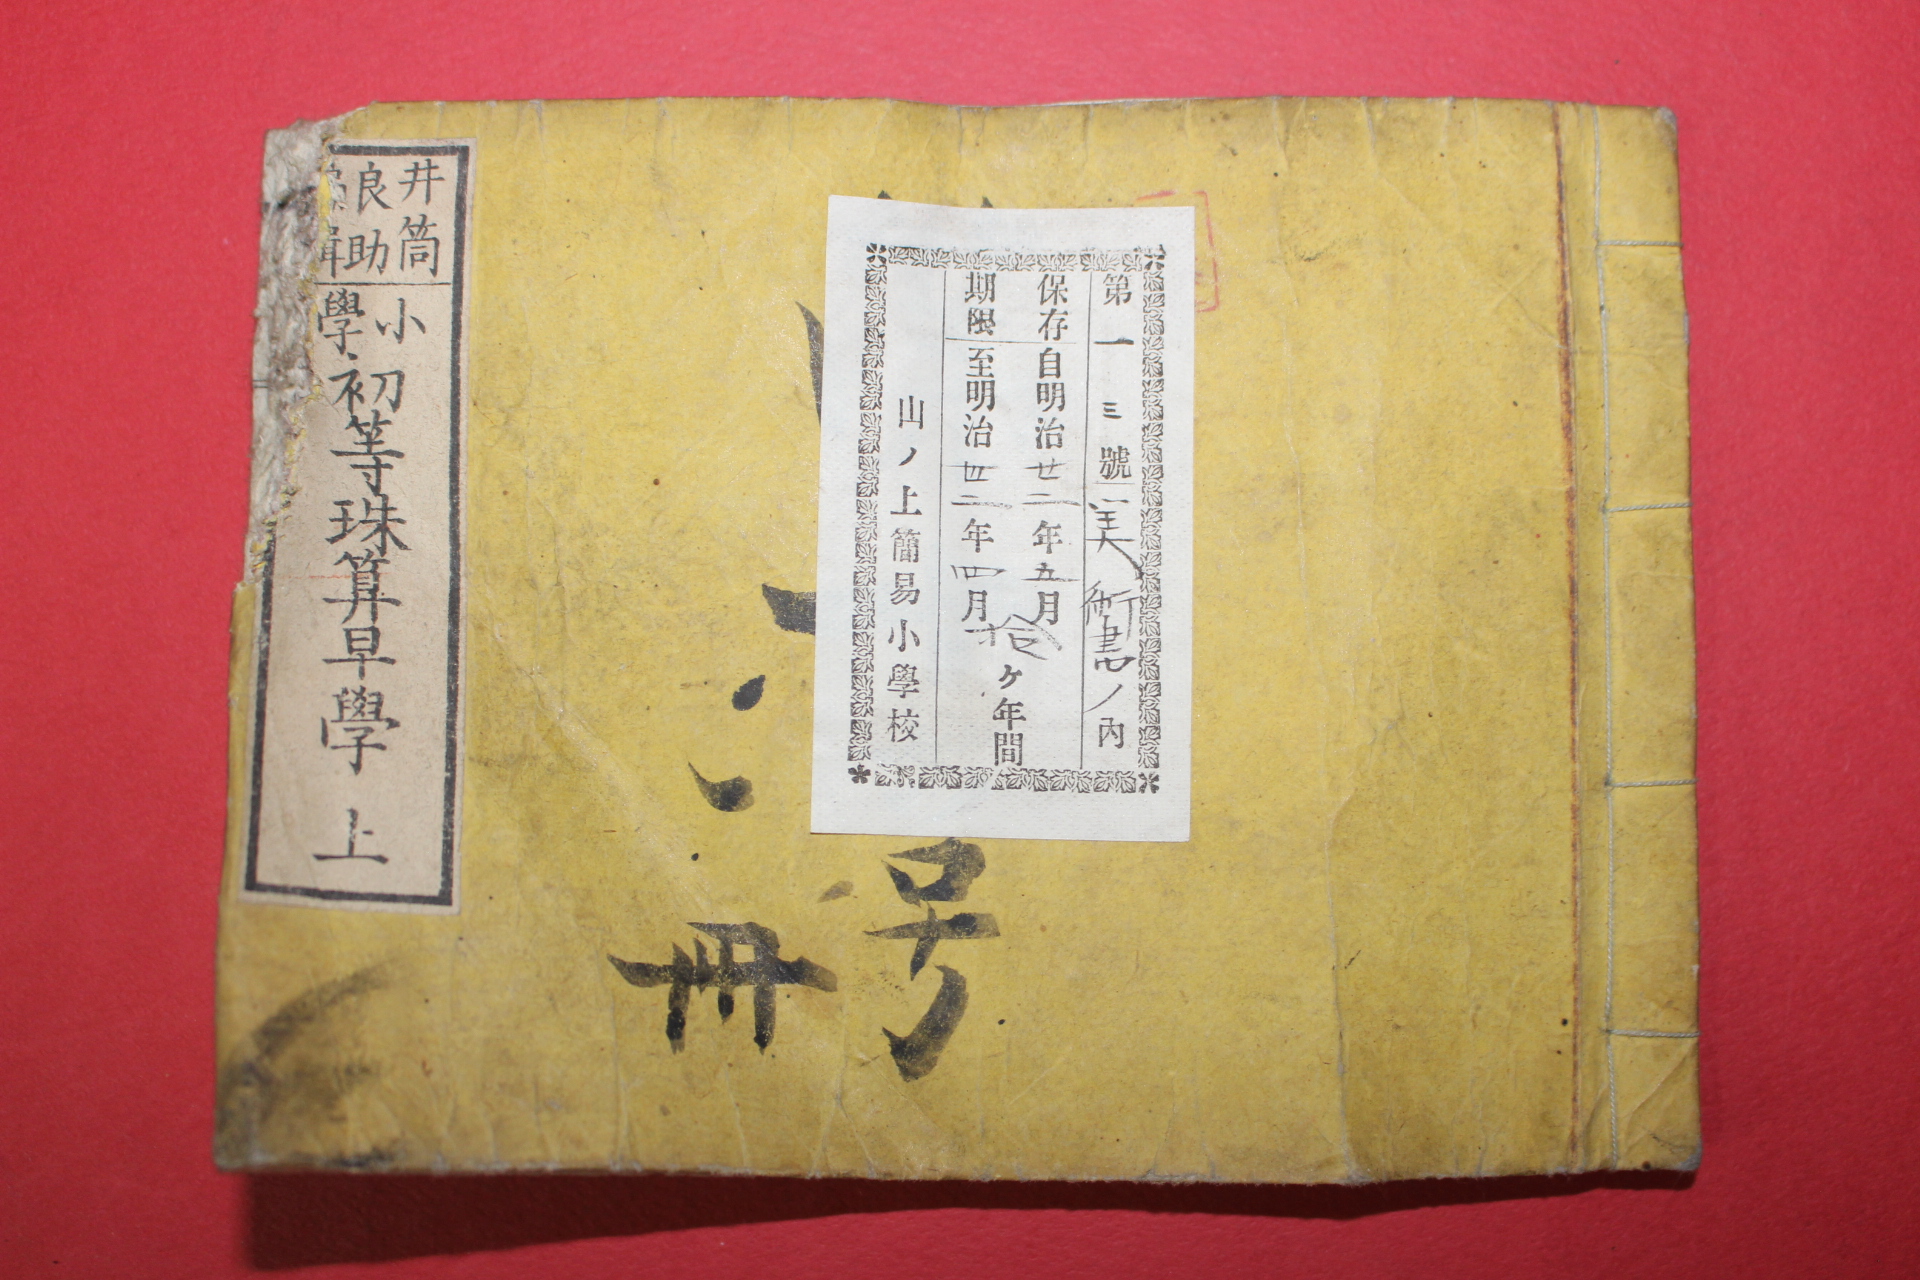 第一三號美術書ノ內
保存自明治廿二年五月
期限至明治四二年四月
拾ケ年間
山ノ上簡易小學校
号
冊
井筒
良助
輯
小學
初等珠算早學 上